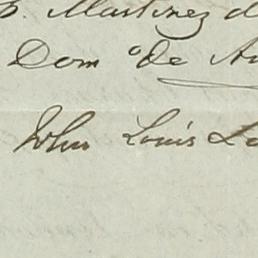 S. Martinez d
Dom º de Au
John Louis Le